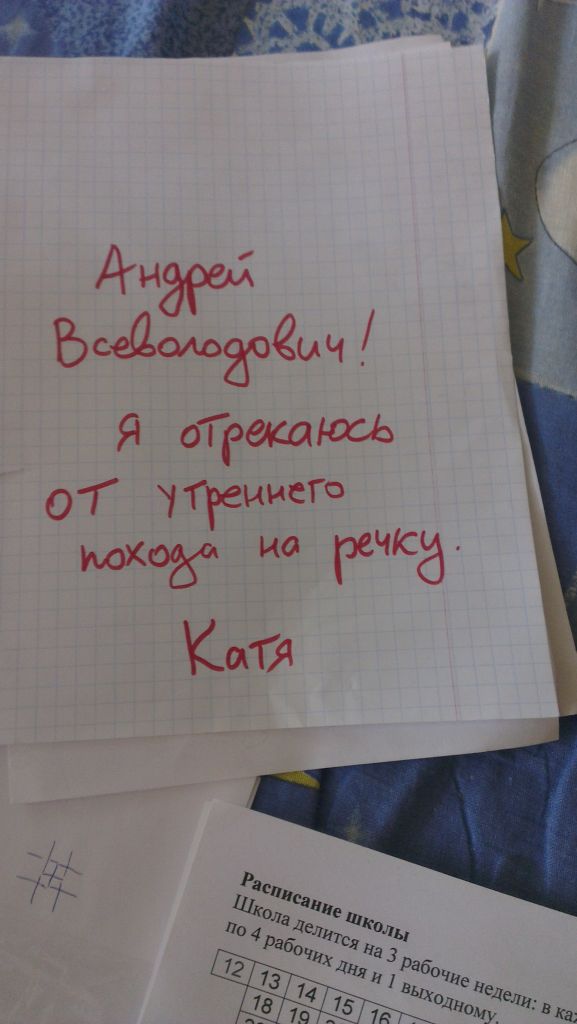 Андрей
Всеволодович!
Я отрекаюсь
от утреннего
похода на речку.
Катя
Расписание школы
Школа делится на 3 рабочие недели: в
по 4 рабочих дня и 1 выходному.
12 13 14 15 16
18 19